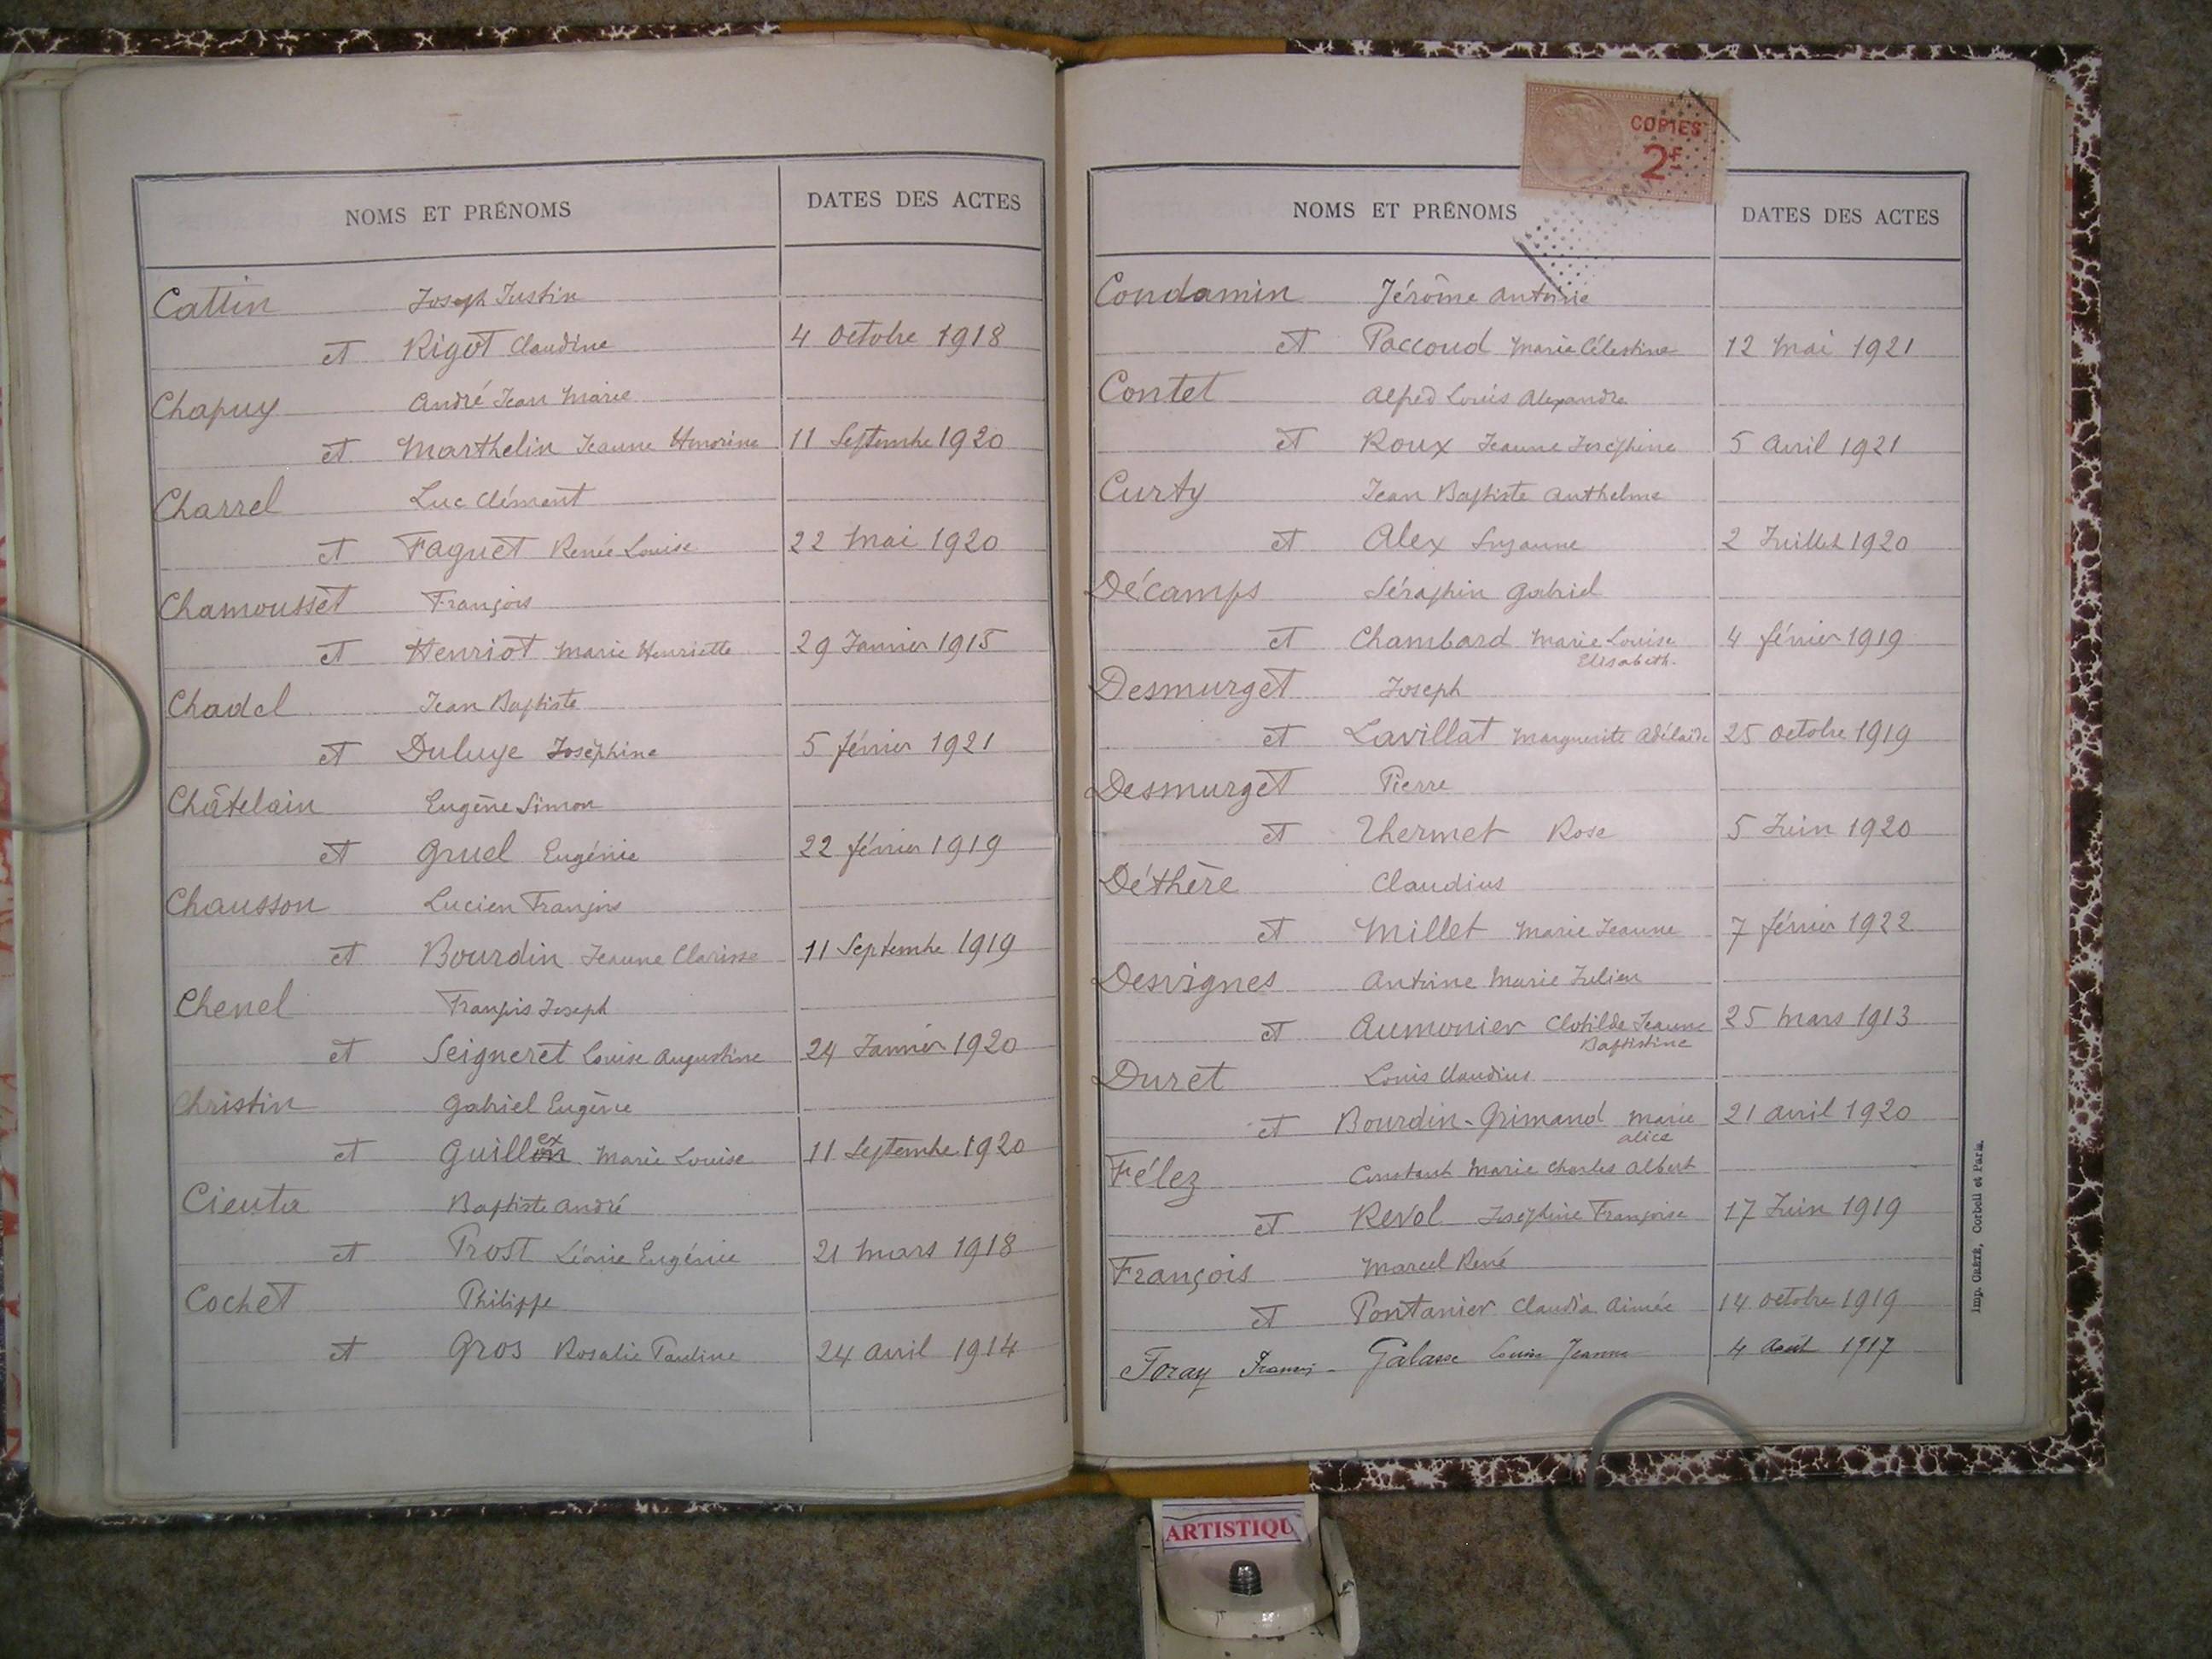 NOMS ET PRÉNOMS DATES DES ACTES
Cattin Joseph Justin
et Rigot Claudine 4 Octobre 1918
Chapuy André Jean Marie
et Marthelin Jeanne Honorine 11 Septembre 1920
Charrel Luc Clément
et Faguet Renée Louise 22 Mai 1920
Chamousset François
et Henriot Marie Henriette 29 Janvier 1915
Chadel Jean Baptiste
et Duluye Joséphine 5 février 1921
Châtelain Eugène Simon
et Gruel Eugénie 22 février 1919
Chausson Lucien François
et Bourdin Jeanne Clarisse 11 Septembre 1919
Chenel François Joseph
et Seigneret Louise Augustine 24 Janvier 1920
Christin Gabriel Eugène
et Guillex Marie Louise 11 Septembre 1920
Cieuta Baptiste André
et Prost Léonie Eugénie 21 Mars 1918
Cochet Philippe
et Gros Rosalie Pauline 24 avril 1914
COPIES
2F
NOMS ET PRÉNOMS DATES DES ACTES
Condamin Jérôme Antoine
et Paccoud Marie Célestine 12 Mai 1921
Contet Alfred Louis Alexandre
et Roux Jeanne Joséphine 5 Avril 1921
Curty Jean Baptiste Anthelme
et Alex Suzanne 2 Juillet 1920
Décamps Séraphin Gabriel
et Chambard Marie Louise 4 février 1919
Elisabeth.
Desmurget Joseph
et Lavillat Marguerite Adélaïde 25 Octobre 1919
Desmurget Pierre
et Thermet Rose 5 Juin 1920
Déthère Claudius
et Millet Marie Jeanne 7 février 1922
Desvignes Antoine Marie Julien
et Aumonier Clotilde Jeanne 25 Mars 1913
Baptistine
Duret Louis Claudius
et Bourdin-Grimand Marie 21 avril 1920
alice
Félez Constant Marie Charles Albert
et Revol Joséphine Françoise 17 Juin 1919
François Marcel René
et Pontanier Claudia Aimée 14 octobre 1919
Foray Francis - Galasse Louise Jeanne 4 Août 1917
Imp. CRÉTÉ, Corbeil et Paris.
ARTISTIQU